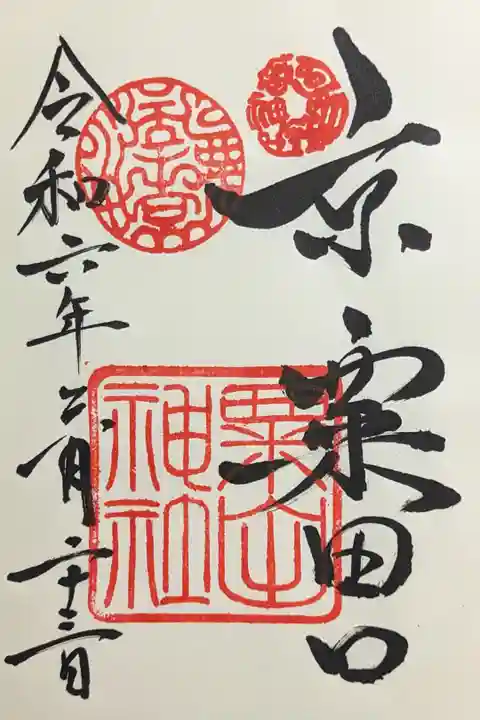 京 粟田口
粟田
神社
令和六年二月二十三日